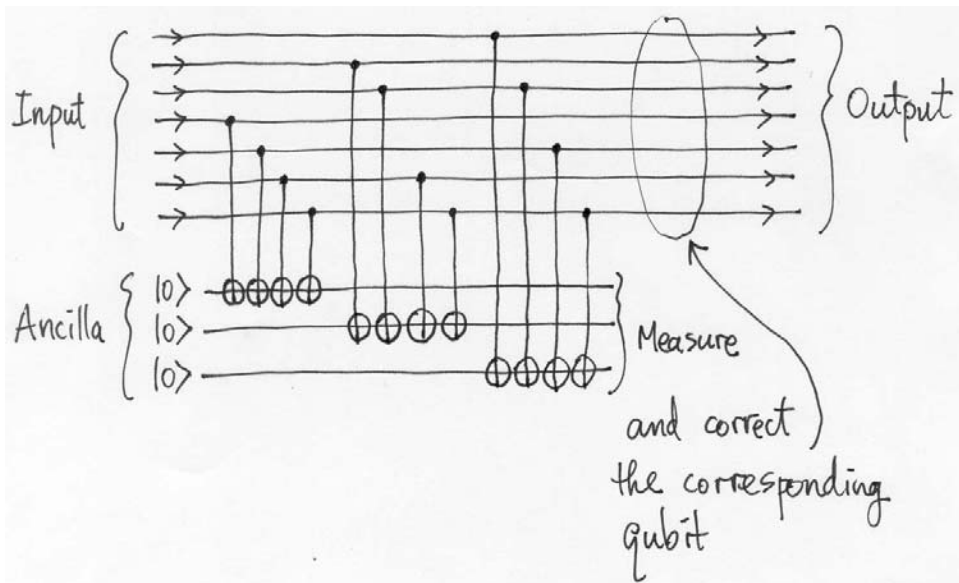 Input
Output
Ancilla
|0>
|0>
|0>
Measure
and correct
the corresponding
qubit